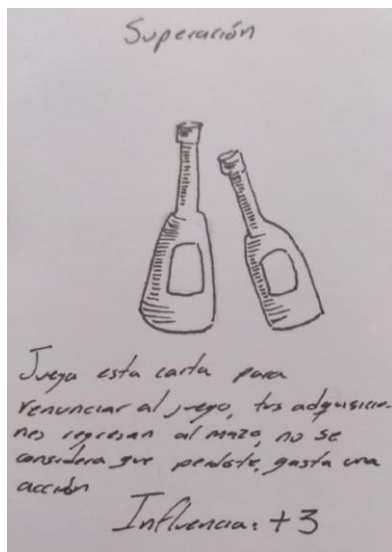 Superación
Juega esta carta para
renunciar al juego, tus adquisicio-
nes regresan al mazo, no se
considera que perdiste, gasta una
acción
Influencia: +3